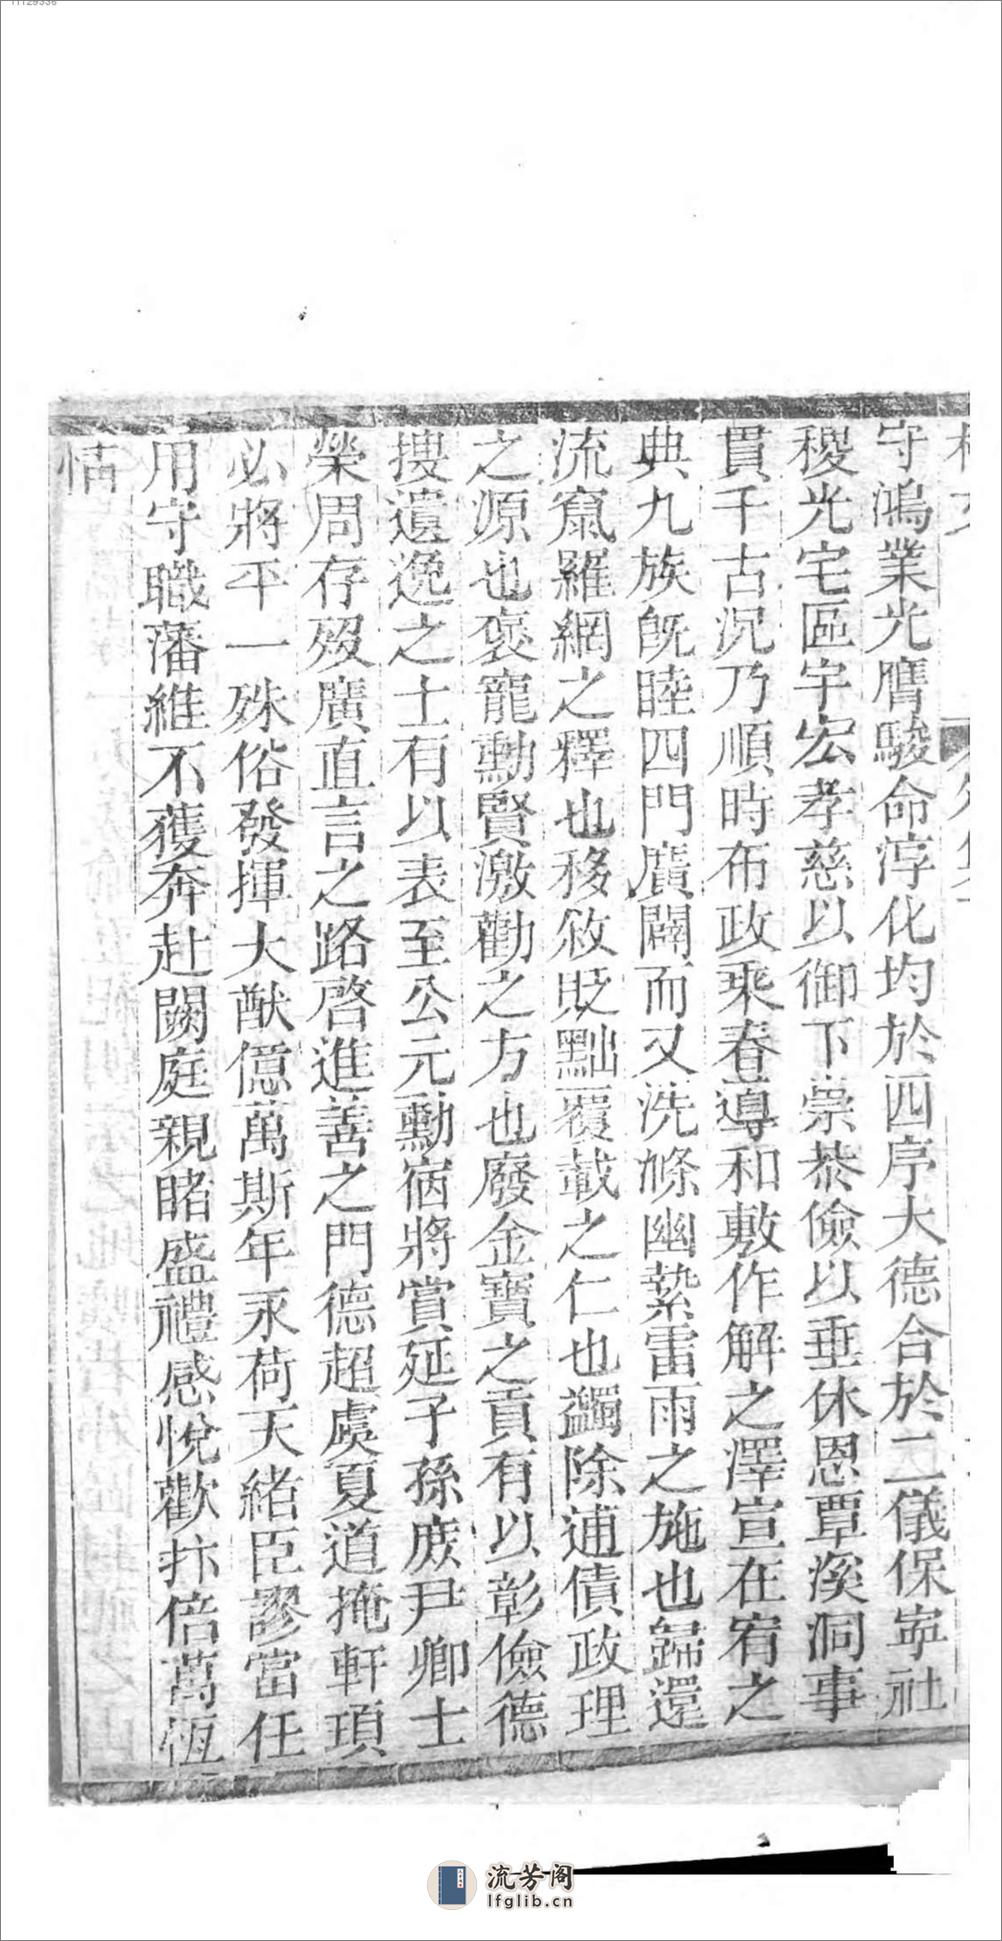 守鴻業光膺駿命淳化均於四序大德合於二儀保寍社
稷光宅區宇宏孝慈以御下崇恭儉以垂休恩覃溪洞事
貫千古況乃順時布政乘春導和敷作解之澤宣在宥之
典九族旣睦四門廣闢而又洗滌幽蟄雷雨之施也歸還
流竄羅網之釋也移敘貶黜覆載之仁也蠲除逋債政理
之源也褒寵勳賢激勸之方也廢金寶之貢有以彰儉德
搜遺逸之士有以表至公元勳宿將賞延子孫庶尹卿士
榮周存歿廣直言之路啓進善之門德超虞夏道掩軒頊
必將平一殊俗發揮大猷億萬斯年永荷天緒臣謬當任
用守職藩維不獲奔赴闕庭親睹盛禮感悅歡抃倍萬恆
情
流芳阁
lfglib.cn